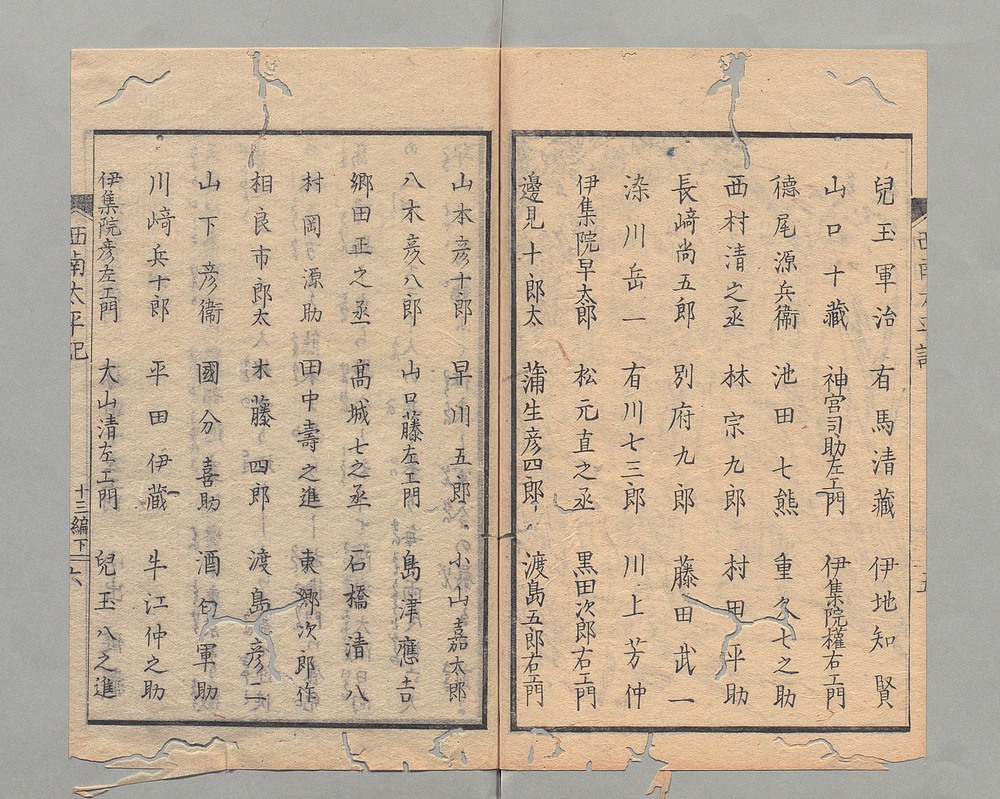 兒玉軍治 右馬清藏 伊地知賢
山口十藏 神宮司助左エ門 伊集院權右エ門
德尾源兵衞 池田七熊 重久七之助
西村清之丞 林宗九郎 村田平助
長﨑尚五郎 別府九郎 藤田武一
染川岳一 有川七三郎 川上芳仲
伊集院早太郎 松元直之丞 黒田次郎右エ門
邊見十郎太 蒲生彦四郎 渡島五郎右エ門
山本彦十郎 早川五郎 小山嘉太郎
八木彦八郎 山口藤左エ門 島津應吉
郷田正之丞 髙城七之丞 石橋清八
村岡源助 田中壽之進 東郷次郎作
相良市郎太 木藤四郎 渡島彦二
山下彦衞 國分喜助 酒匂軍助
川﨑兵十郎 平田伊藏 牛江仲之助
伊集院彦左エ門 大山清左エ門 兒玉八之進
西南太平記 十三編下 六